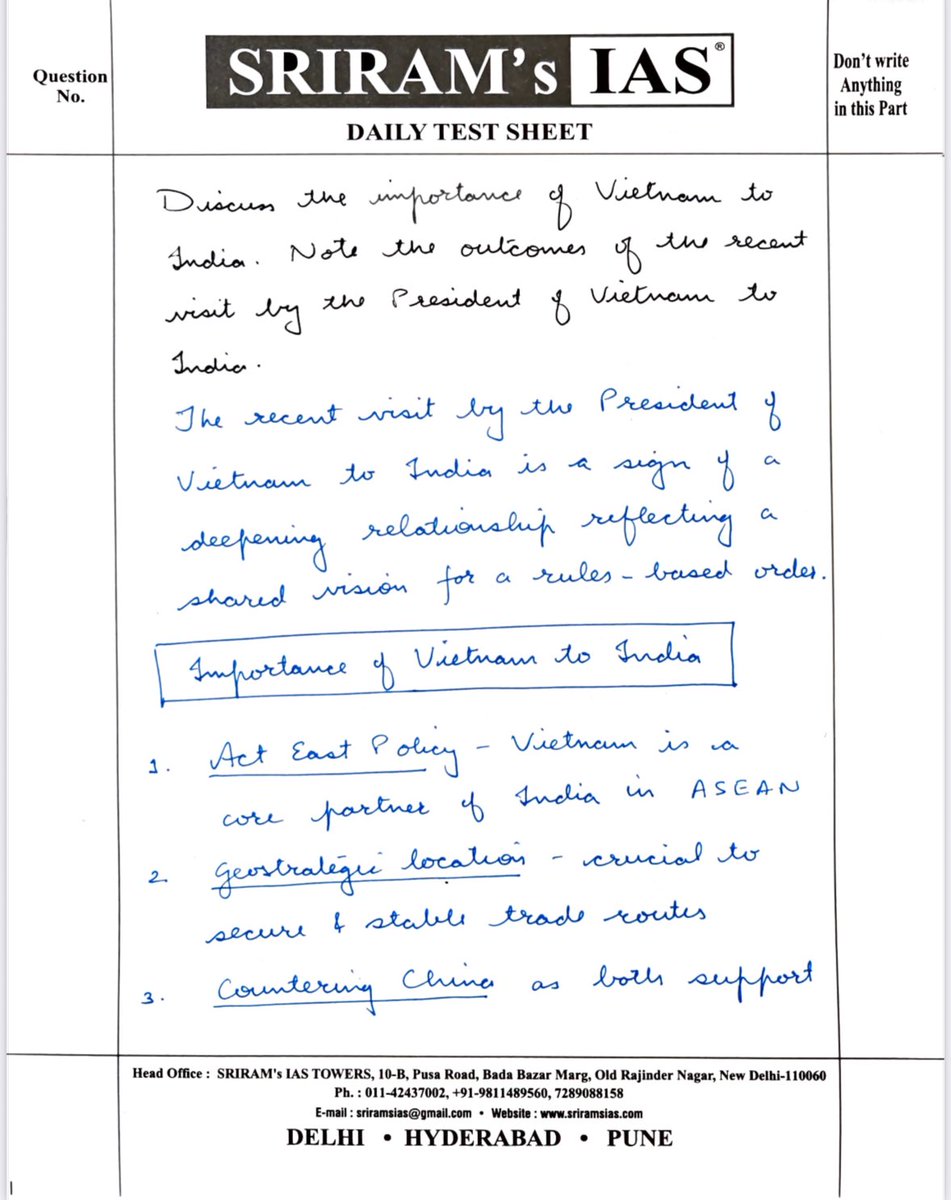 Question
No.
SRIRAM's IAS®
DAILY TEST SHEET
Don't write
Anything
in this Part
Discuss the importance of Vietnam to
India. Note the outcomes of the recent
visit by the President of Vietnam to
India.
The recent visit by the President of
Vietnam to India is a sign of a
deepening relationship reflecting a
shared vision for a rules-based order.
Importance of Vietnam to India
1. Act East Policy - Vietnam is a
core partner of India in ASEAN
2. Geostrategic location - crucial to
secure & stable trade routes
3. Countering China as both support
Head Office : SRIRAM's IAS TOWERS, 10-B, Pusa Road, Bada Bazar Marg, Old Rajinder Nagar, New Delhi-110060
Ph. : 011-42437002, +91-9811489560, 7289088158
E-mail : sriramsias@gmail.com • Website : www.sriramsias.com
DELHI • HYDERABAD • PUNE